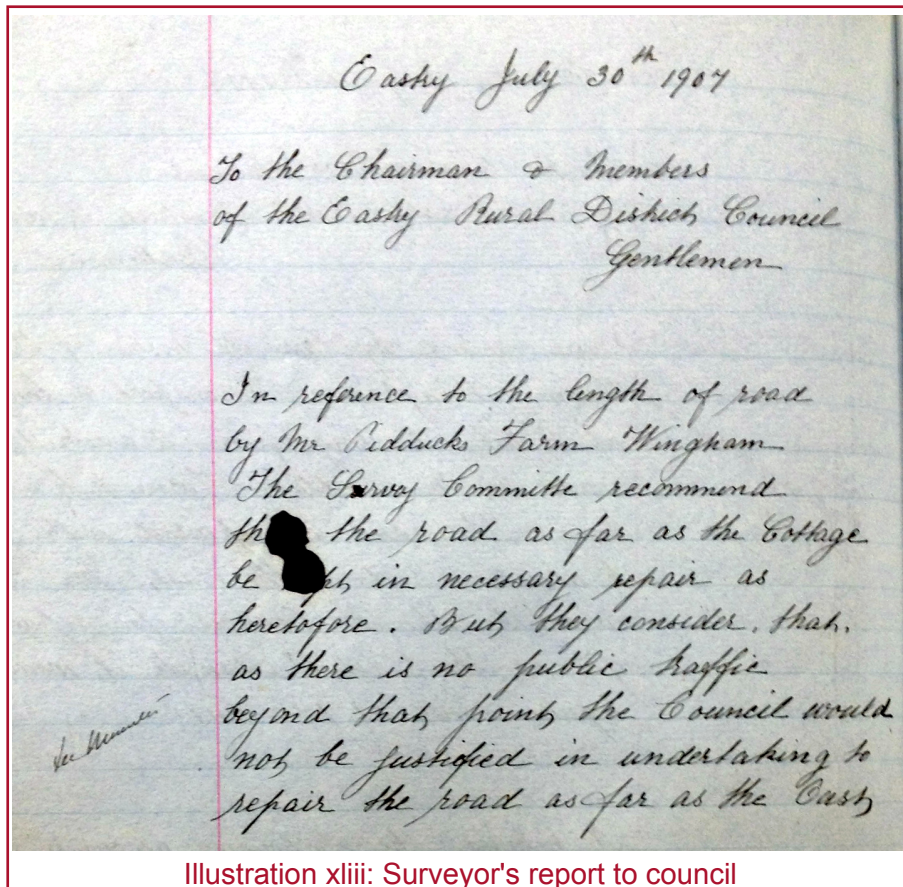 Eastry July 30th 1907
To the Chairman & Members
of the Eastry Rural District Council
Gentlemen
In reference to the length of road
by Mr Pidducks Farm Wingham
The Survey Committe recommend
the road as far as the Cottage
be in necessary repair as
heretofore. But they consider, that,
as there is no public traffic
beyond that point the Council would
not be justified in undertaking to
repair the road as far as the Oast
Illustration xliii: Surveyor's report to council